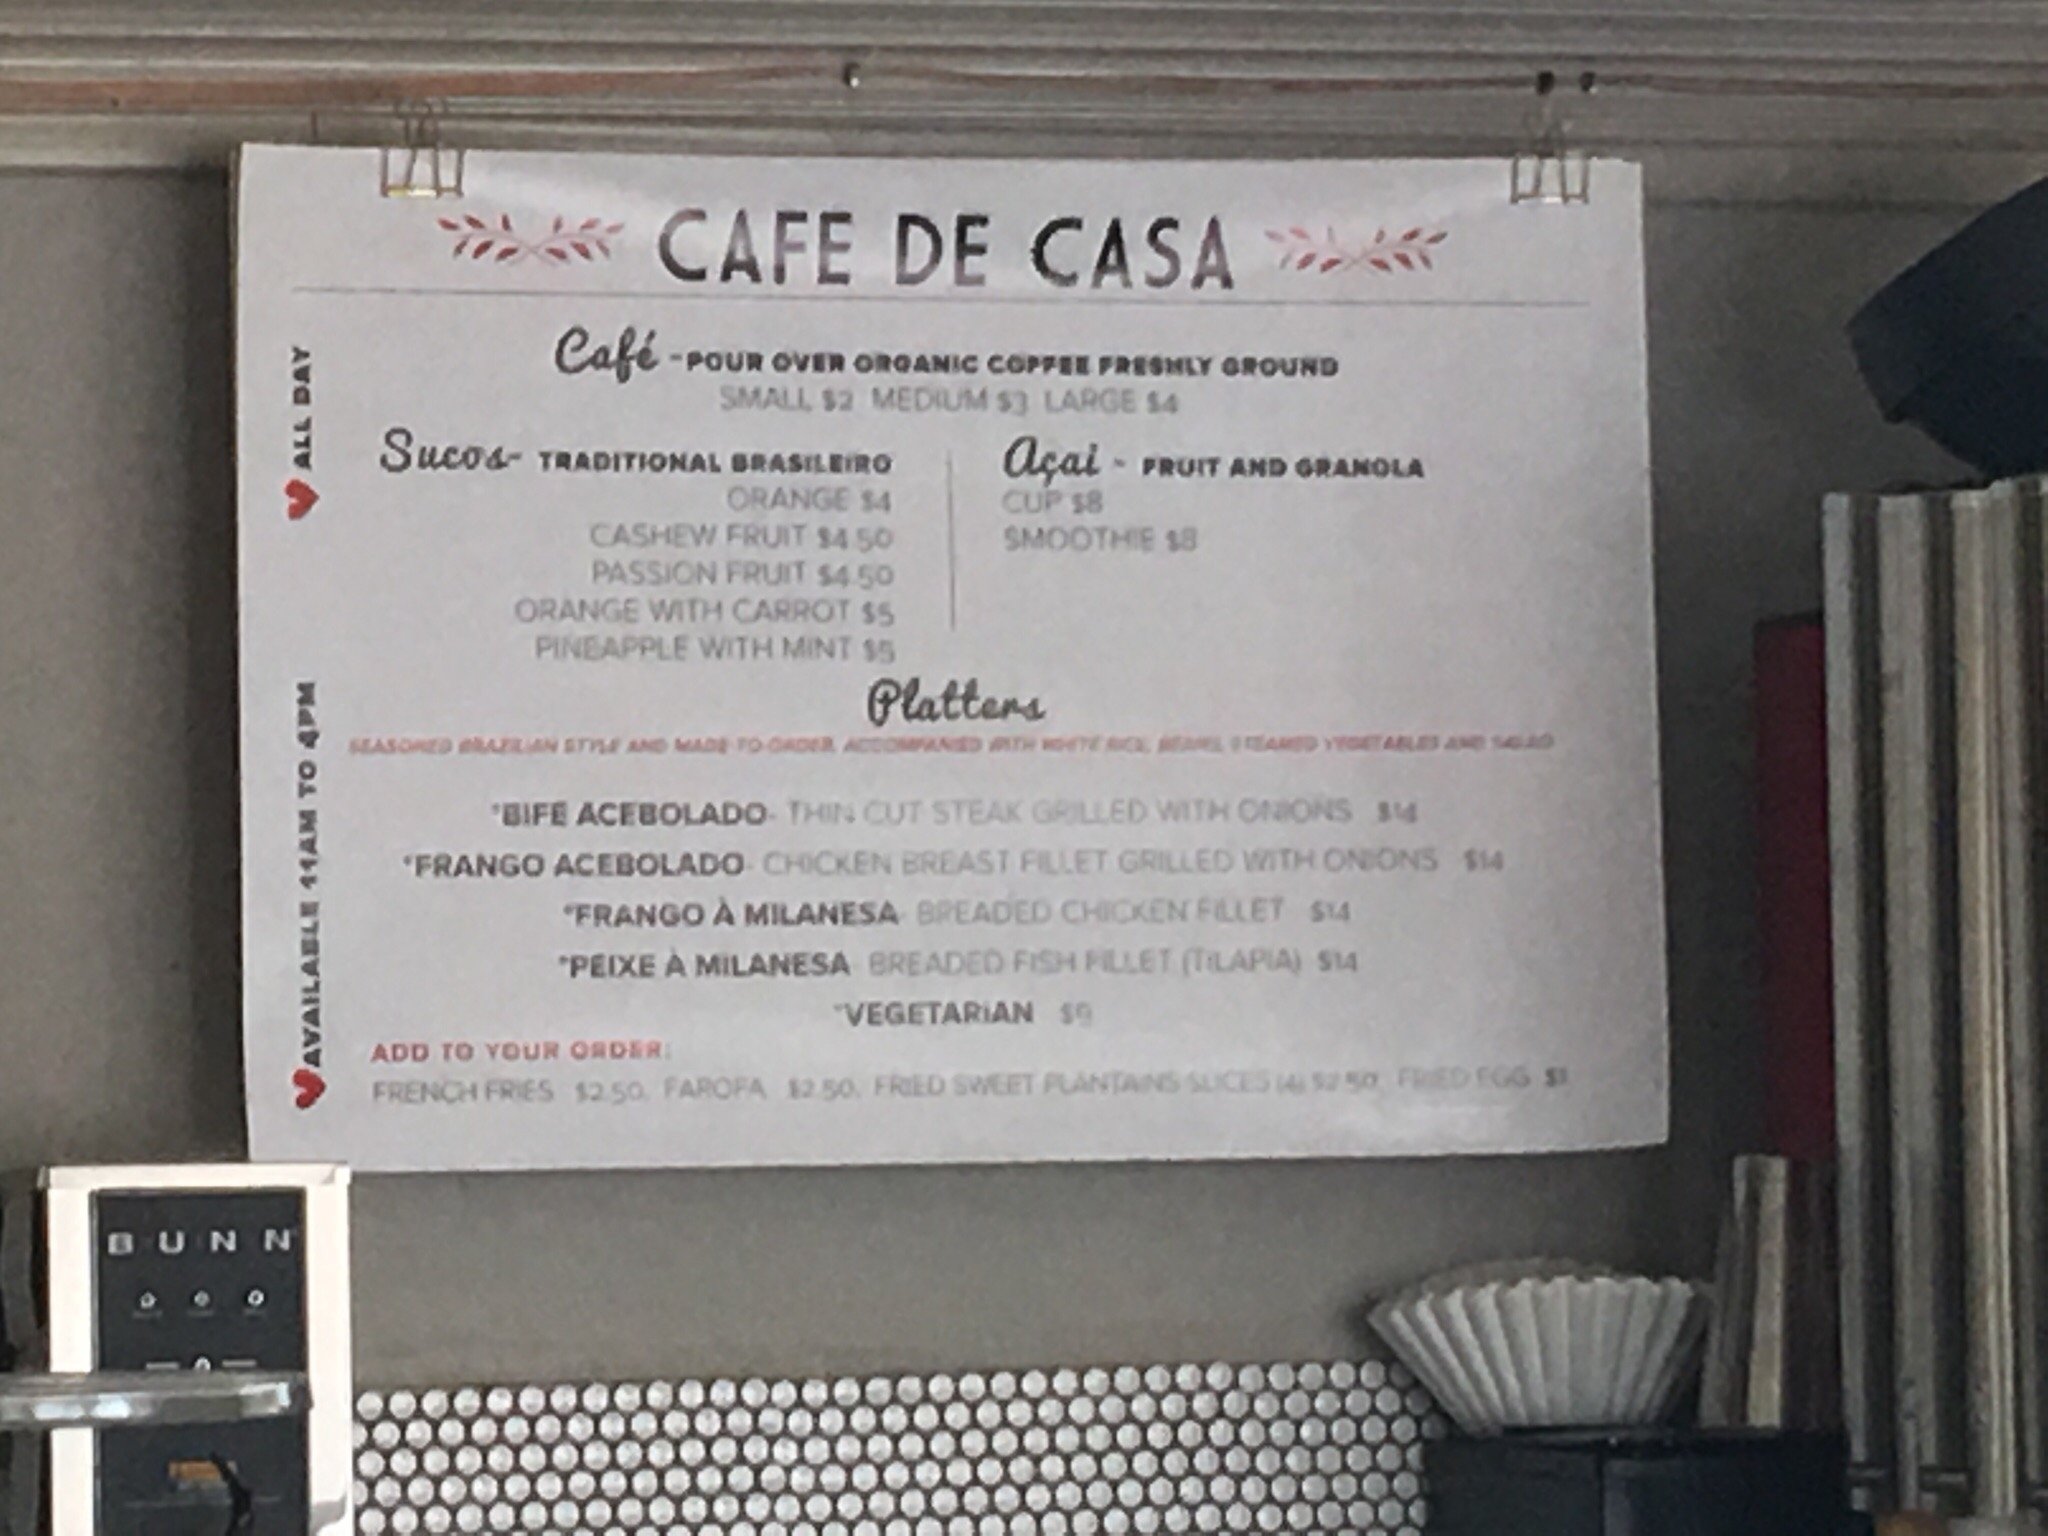 CAFE DE CASA
ALL DAY
Café -POUR OVER ORGANIC COFFEE FRESHLY GROUND
SMALL $2 MEDIUM $3 LARGE $4
Sucos- TRADITIONAL BRASILEIRO
ORANGE $4
CASHEW FRUIT $4.50
PASSION FRUIT $4.50
ORANGE WITH CARROT $5
PINEAPPLE WITH MINT $5
Açai - FRUIT AND GRANOLA
CUP $8
SMOOTHIE $8
AVAILABLE 11AM TO 4PM
Platters
SEASONED BRAZILIAN STYLE AND MADE-TO-ORDER, ACCOMPANIED WITH WHITE RICE, BEANS, STEAMED VEGETABLES AND SALAD
*BIFE ACEBOLADO- THIN CUT STEAK GRILLED WITH ONIONS $14
*FRANGO ACEBOLADO- CHICKEN BREAST FILLET GRILLED WITH ONIONS $14
*FRANGO À MILANESA- BREADED CHICKEN FILLET $14
*PEIXE À MILANESA- BREADED FISH FILLET (TILAPIA) $14
*VEGETARIAN $9
ADD TO YOUR ORDER:
FRENCH FRIES $2.50, FAROFA $2.50, FRIED SWEET PLANTAINS SLICES (4) $2.50, FRIED EGG $1
BUNN